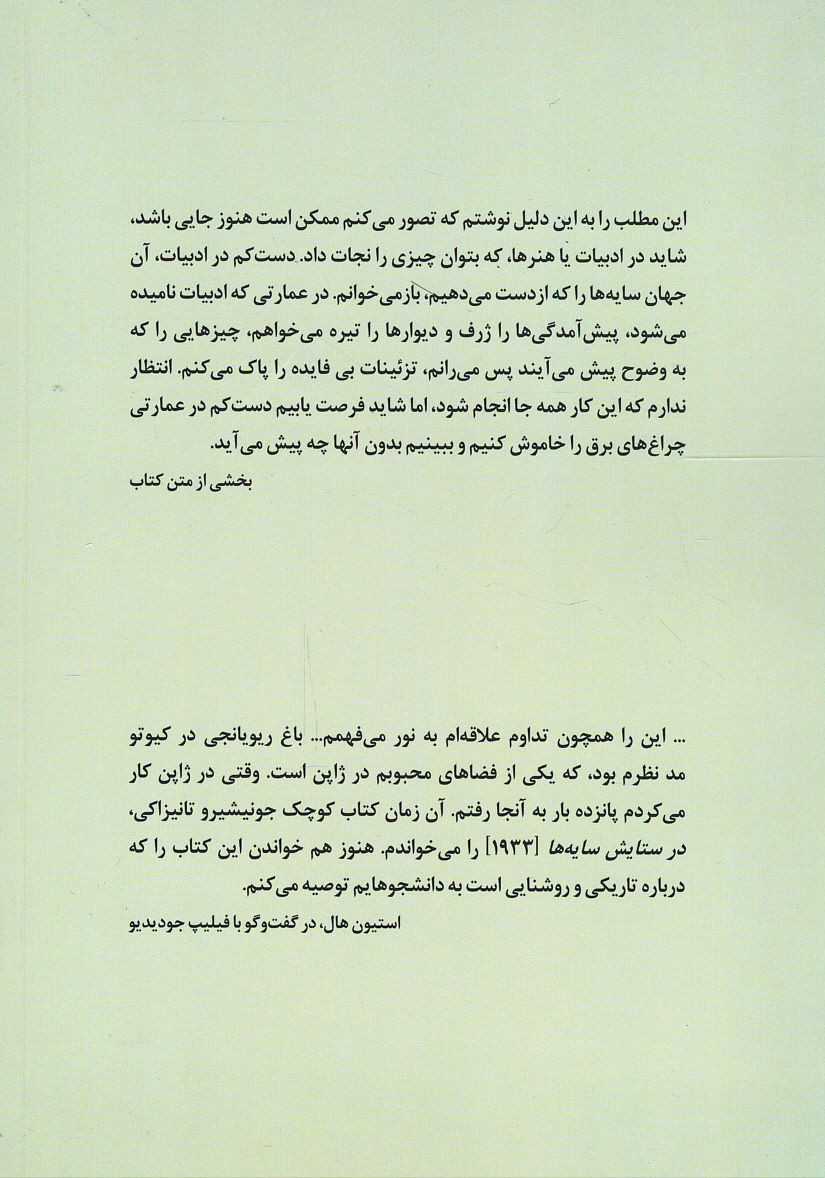 این مطلب را به این دلیل نوشتم که تصور می‌کنم ممکن است هنوز جایی باشد،
شاید در ادبیات یا هنرها، که بتوان چیزی را نجات داد. دست‌کم در ادبیات، آن
جهان سایه‌ها را که ازدست می‌دهیم، بازمی‌خوانم. در عمارتی که ادبیات نامیده
می‌شود، پیش‌آمدگی‌ها را ژرف و دیوارها را تیره می‌خواهم، چیزهایی را که
به وضوح پیش می‌آیند پس می‌رانم، تزئینات بی فایده را پاک می‌کنم. انتظار
ندارم که این کار همه جا انجام شود، اما شاید فرصت یابیم دست‌کم در عمارتی
چراغ‌های برق را خاموش کنیم و ببینیم بدون آنها چه پیش می‌آید.
بخشی از متن کتاب
... این را همچون تداوم علاقه‌ام به نور می‌فهمم... باغ ریویانجی در کیوتو
مد نظرم بود، که یکی از فضاهای محبوبم در ژاپن است. وقتی در ژاپن کار
می‌کردم پانزده بار به آنجا رفتم. آن زمان کتاب کوچک جونیشیرو تانیزاکی،
در ستایش سایه‌ها [۱۹۳۳] را می‌خواندم. هنوز هم خواندن این کتاب را که
درباره تاریکی و روشنایی است به دانشجوهایم توصیه می‌کنم.
استیون هال، در گفت‌وگو با فیلیپ جودیدیو